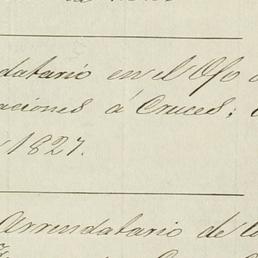 datario en el Ofo
aciones á Cruces;
1827.
Arrendatario de